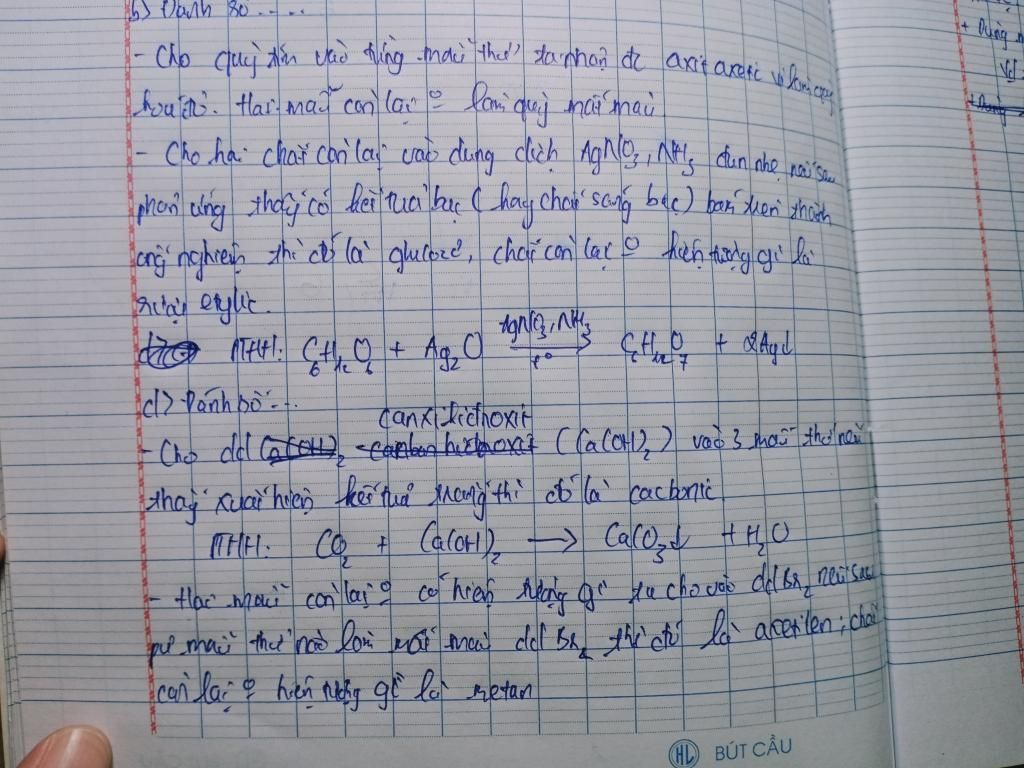 b) Đánh số.....
- Cho quỳ tím vào từng mẫu thử ta phân đc axit axetic vì làm quỳ
hóa đỏ. Hai mẫu còn lại ko làm quỳ mất màu
- Cho hai chất còn lại vào dung dịch AgNO3, NH3 đun nhẹ nếu sau
phản ứng thấy có kết tủa bạc (hay chất sáng bạc) bám trên thành
ống nghiệm thì đó là glucozơ, chất còn lại ko hiện tượng gì là
rượu etylic.
PTHH: C6H12O6 + Ag2O AgNO3, NH3 t° C6H12O7 + 2Ag↓
c) Đánh số...
canxi hidroxit
- Cho dd (Ca(OH)2) vào 3 mẫu thử nếu
thấy xuất hiện kết tủa trắng thì đó là cacbonic
PTHH: CO2 + Ca(OH)2 → CaCO3↓ + H2O
- Hai mẫu còn lại ko có hiện tượng gì ta cho vào dd Br2 nếu sau
pư mẫu thử nào làm mất màu dd Br2 thì đó là axetilen; chất
còn lại ko hiện tượng gì là metan
HL BÚT CẦU
+ Dùng